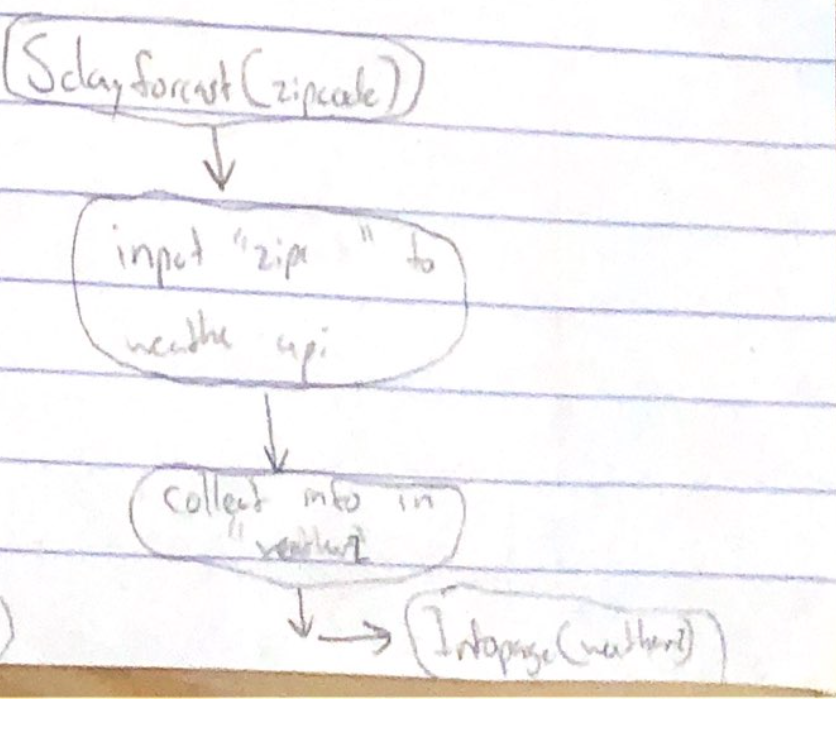 5dayforcast(zipcode)
input "zip " to
weathe api
collect info in
"weather2
Infopage(weather2)